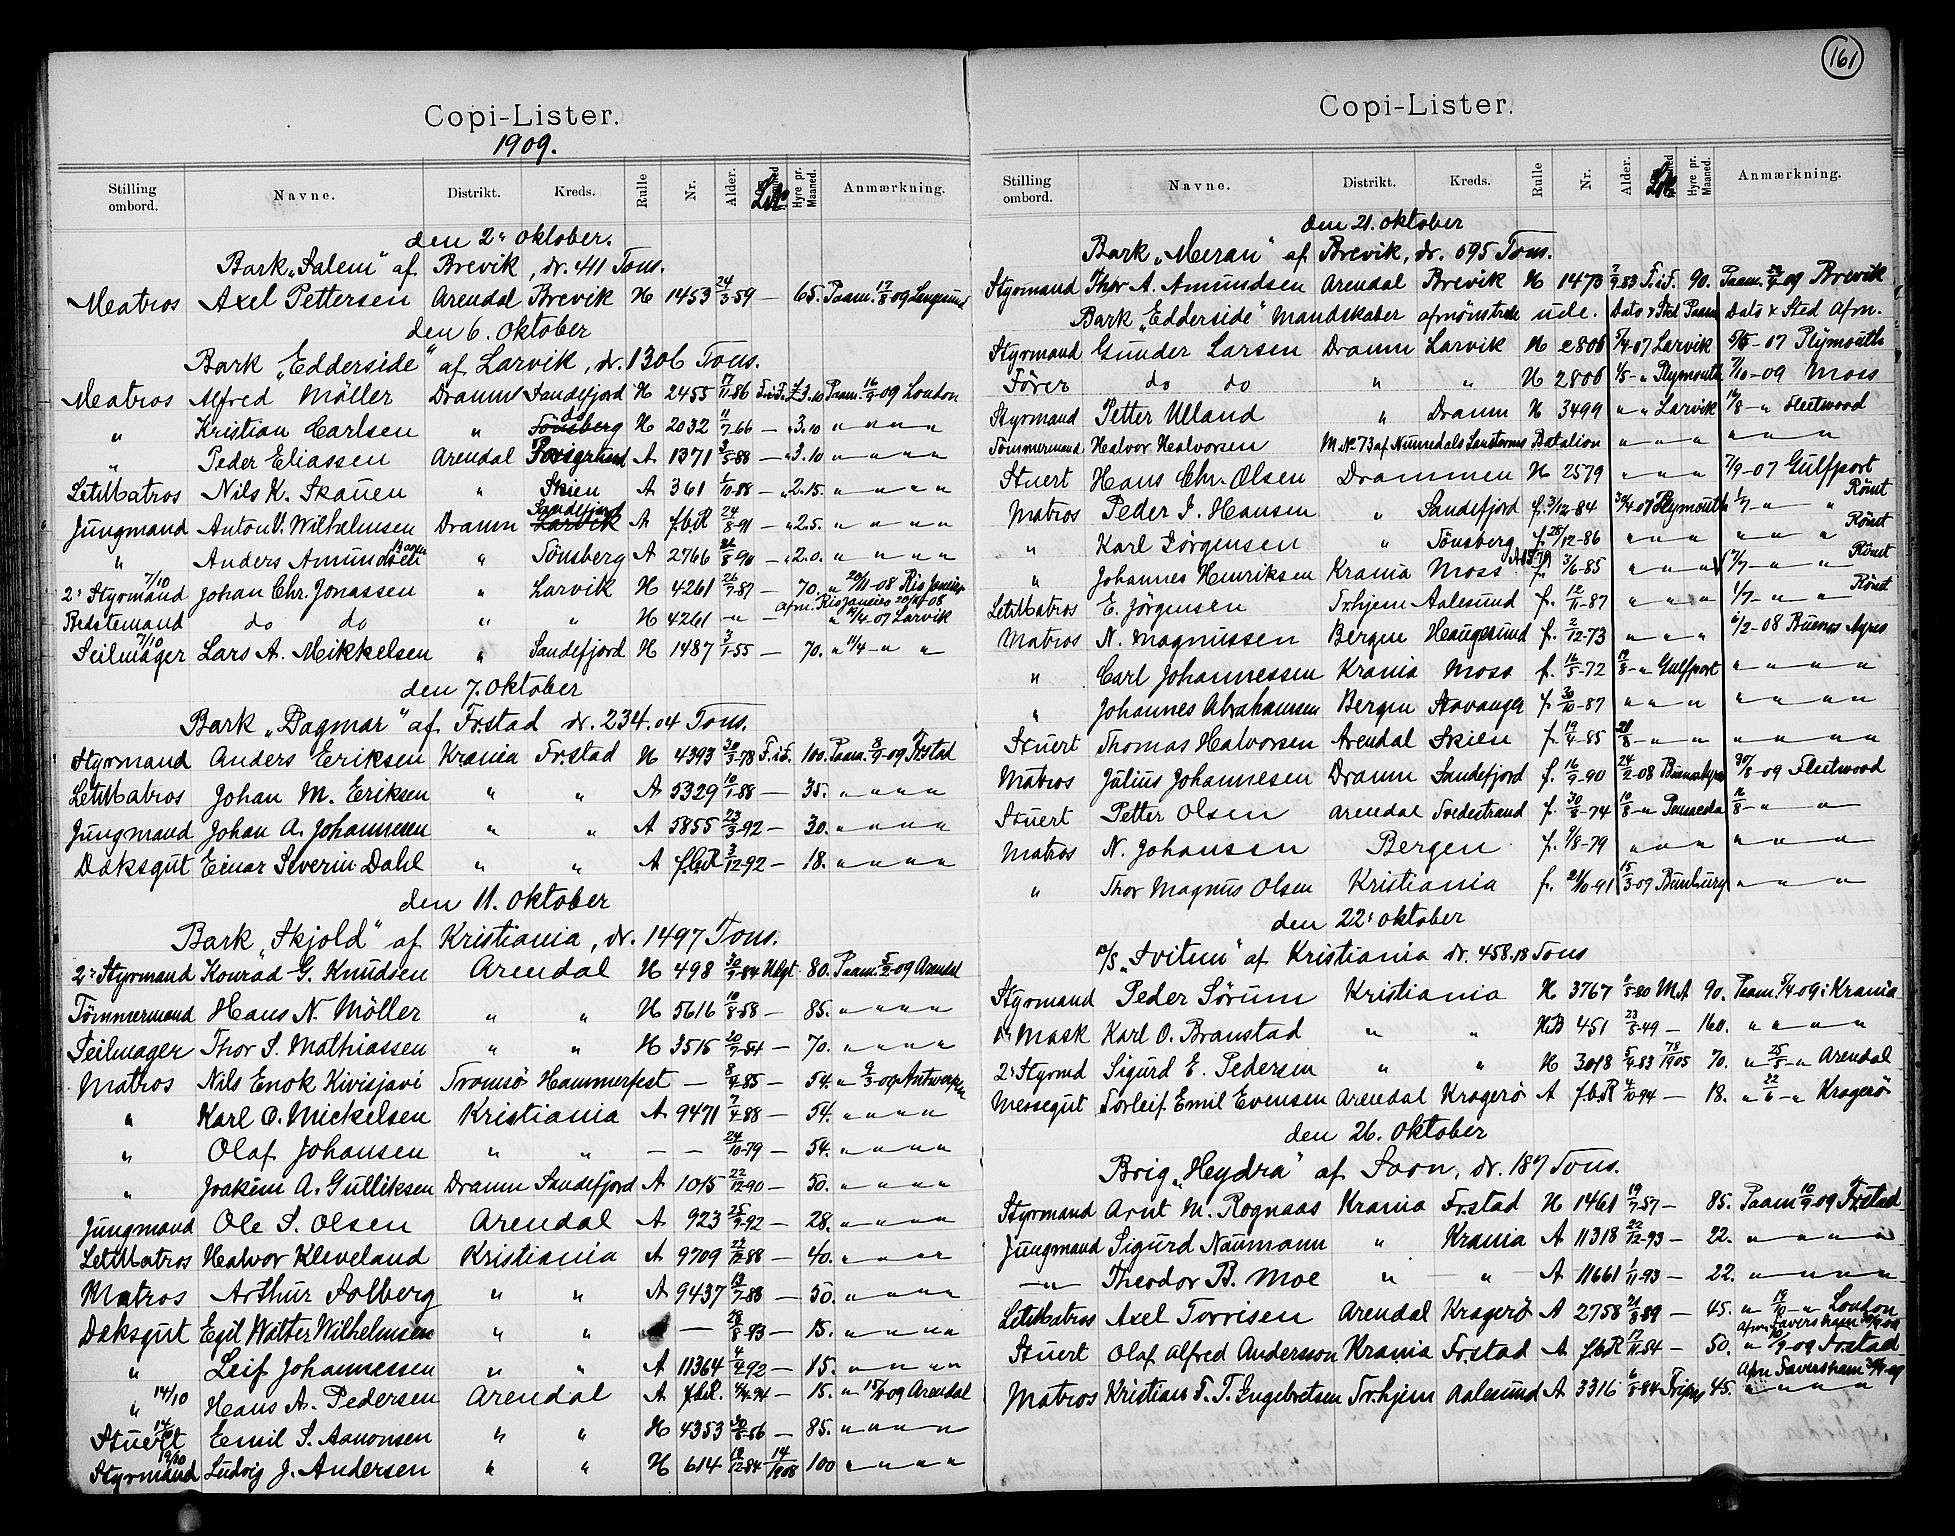 Copi-Lister.
1909.
Stilling ombord. Navne. Distrikt. Kreds. Rulle Nr. Alder. Hyre pr. Maaned. Anmærkning.
den 2' Oktober.
Bark „Salem" af Brevik, dr. 411 Tons.
Matros Axel Pettersen Arendal Brevik H 1453 24/3-59 — 65. Paam. 17/8-09 Langesund
den 6. Oktober
Bark „Edderside" af Larvik, dr. 1306 Tons.
Matros Alfred Möller Dramm Sandefjord H 2455 17/11-86 F.i.F. £3.10 Paam. 16/9-09 London
" Kristian Carlsen " Tönsberg do H 2032 11/7-66 — "3.10 " " " "
" Peder Eliassen Arendal Porsgrund A 1371 3/5-88 — "3.10 " " " "
LetMatros Nils K. Skauen " Skien A 361 1/10-88 — "2.15. " " " "
Jungmand Anton V. Wilhelmsen Dramm Larvik Sandefjord A f.b.R 24/8-91 — "2.5. " " " "
" Anders Amundsen " Tönsberg A 2766 26/8-90 — "2.0. " " " "
2' Styrmand 7/10 Johan Chr. Jonassen " Larvik H 4261 26/7-87 — 70. " 20/11-08 Rio Janeiro
Bedstemand do do " " H 4261 — " — afm. Rio Janeiro 20/11-08 " 12/4-07 Larvik
Seilmager 7/10 Lars A. Mikkelsen " Sandefjord H 1487 3/1-55 — 70. " 11/4 — " "
den 7. Oktober
Bark „Dagmar" af Fr.stad dr. 234.04 Tons.
Styrmand Anders Eriksen Krania Fr.stad H 4393 30/3-78 F.i.F. 100. Paam. 8/9-09 Fr.stad
LetMatros Johan M. Eriksen " " A 5329 10/1-88 — 35. " " " "
Jungmand Johan A. Johannesen " " A 5855 23/3-92 — 30. " " " "
Dæksgut Einar Severin Dahl " " A f.b.R 3/12-92 — 18. " " " "
den 11. Oktober
Bark „Skjold" af Kristiania, dr. 1497 Tons.
2' Styrmand Konrad G. Knudsen Arendal H 498 30/9-84 Udgt. 80. Paam. 5/2-09 Arendal
Tømmermand Hans N. Möller " " H 5616 10/8-58 — 85. " " " "
Seilmager Thor S. Mathiassen " " H 3515 20/9-54 — 70. " " " "
Matros Nils Enok Kivisjavi Tromsö Hammerfest — 8/4-85 — 54. " 9/3-09 Antwerpen
" Karl O. Mickelsen Kristiania A 9471 7/4-88 — 54. " " " "
" Olaf Johansen " " — — 24/10-79 — 54. " " " "
" Joakim A. Gulliksen Dramm Sandefjord A 1015 22/12-90 — 50. " " " "
Jungmand Ole S. Olsen Arendal A 923 25/9-92 — 28. " " " "
LetMatros Halvor Kleveland Kristiania A 9709 22/12-88 — 40. " " " "
Matros Arthur Solberg " " A 9437 13/7-88 — 50. " " " "
Dæksgut Egil Walter Wilhelmsen " " — 28/8-93 — 15. " " " "
" Leif Johannessen " " A 11364 4/4-92 — 15. " " " "
" 14/10 Hans A. Pedersen Arendal A f.b.R. — 15. " 15/2-09 Arendal
Stuert Emil S. Aanonsen " " H 4353 30/8-56 — 85. " " " "
Styrmand 19/10 Ludvig J. Andersen " " H 614 12/12-84 14/1908 100 " " " "
161
Copi-Lister.
Stilling ombord. Navne. Distrikt. Kreds. Rulle Nr. Alder. Hyre pr. Maaned. Anmærkning.
den 21. Oktober
Bark „Meran" af Brevik, dr. 695 Tons.
Styrmand Thor A. Amundsen Arendal Brevik H 1473 7/9-83 F.i.F. 90. Paam. -09 Brevik
Bark „Edderside" Mandskaber afmønstrede ude. Dato & Sted Paam Dato & Sted Afm.
Styrmand Gunder Larsen Dramm Larvik H 2806 5/4-07 Larvik -07 Plymouth
Fører do do " " H 2806 1/5 — " Plymouth 7/10-09 Moss
Styrmand Petter Ulland " Dramm H 3499 " " Larvik 12/8 — " Fleetwood
Tømmermand Halvor Halvorsen M.No. 73 af Numedals Landværns Batalion " " " " " "
Stuert Hans Chr. Olsen Drammen H 2579 " " " 7/9-07 Gulfport
Matros Peder J. Hansen " Sandefjord f. 3/12-84 30/4-07 Plymouth 1/7 — " " Rømt
" Karl Jörgensen " Tönsberg f. 28/12-86 " " " " " " Rømt
" Johannes Henriksen Krania Moss f. 3/6-85 " " " 1/7 — " " Rømt
LetMatros E. Jörgensen Tr.hjem Aalesund f. 12/11-87 " " " 1/7 — " " Rømt
Matros N. Magnussen Bergen Haugesund f. 2/12-73 " " " 6/2-08 Buenos Ayres
" Carl Johannessen Krania Moss f. 16/5-72 19/8 — " Gulfport " " " "
" Johannes Abrahamsen Bergen Stavanger f. 30/10-87 " " " " " " "
Stuert Thomas Halvorsen Arendal Skien f. 19/4-85 21/8 — " " " " " "
Matros Julius Johannesen Dramm Sandefjord f. 16/9-90 24/2-08 Buenos Ayres 30/8-09 Fleetwood
Stuert Petter Olsen Arendal Tvedestrand f. 30/8-74 10/8 — " Pensacola 12/8 — " "
Matros N. Johansen Bergen f. 9/8-79 " " " " " "
" Thor Magnus Olsen Kristiania f. 21/10-91 15/3-09 Bunbury " " "
den 22' Oktober
D/S „Svitun" af Kristiania dr. 458.18 Tons
Styrmand Peder Sörum Kristiania H 3767 1/5-80 M.A 90. Paam. 5/4-09 i Krania
1' Mask Karl O. Branstad " " H.B 451 23/5-49 — 160. " " " "
2' Styrmd Sigurd E. Pedersen " " H 3018 5/9-83 78/1905 70. " 25/5 — " Arendal
Messegut Torleif Emil Evensen Arendal Kragerö A f.b.R 4/10-94 — 18. " 22/6 — " Kragerö
den 26. Oktober
Brig „Hydra" af Soon, dr. 187 Tons.
Styrmand Arnt M. Rognaas Krania Fr.stad H 1461 19/7-57 — 85. Paam 10/9-09 Fr.stad
Jungmand Sigurd Naumann " Krania A 11318 22/12-93 — 22. " " " "
— " — Theodor B. Moe " — " — A 11661 1/11-93 — 22. " " " "
LetMatros Axel Torrisen Arendal Kragerö A 2758 21/8-89 — 45. " 19/10 — " London
Afm. Faversham
Stuert Olaf Alfred Anderson Krania Fr.stad A f.b.R 17/11-54 — 50. " /9-09 Fr.stad
Afm Faversham
Matros Kristian F. T. Ingebretsen Tr.hjem Aalesund A 3316 6/8-84 45. " " " "